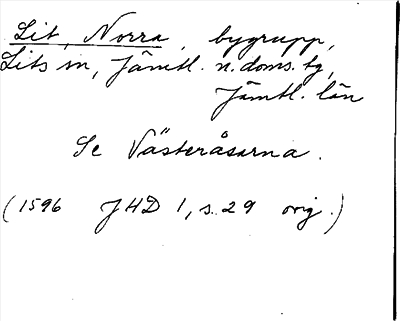 Lit, Norra, bygrupp,
Lits sn, Jämtl. n. doms. tg,
Jämtl. län
Se Västeråsarna.
(1596 JHD 1, s. 29 orig.)